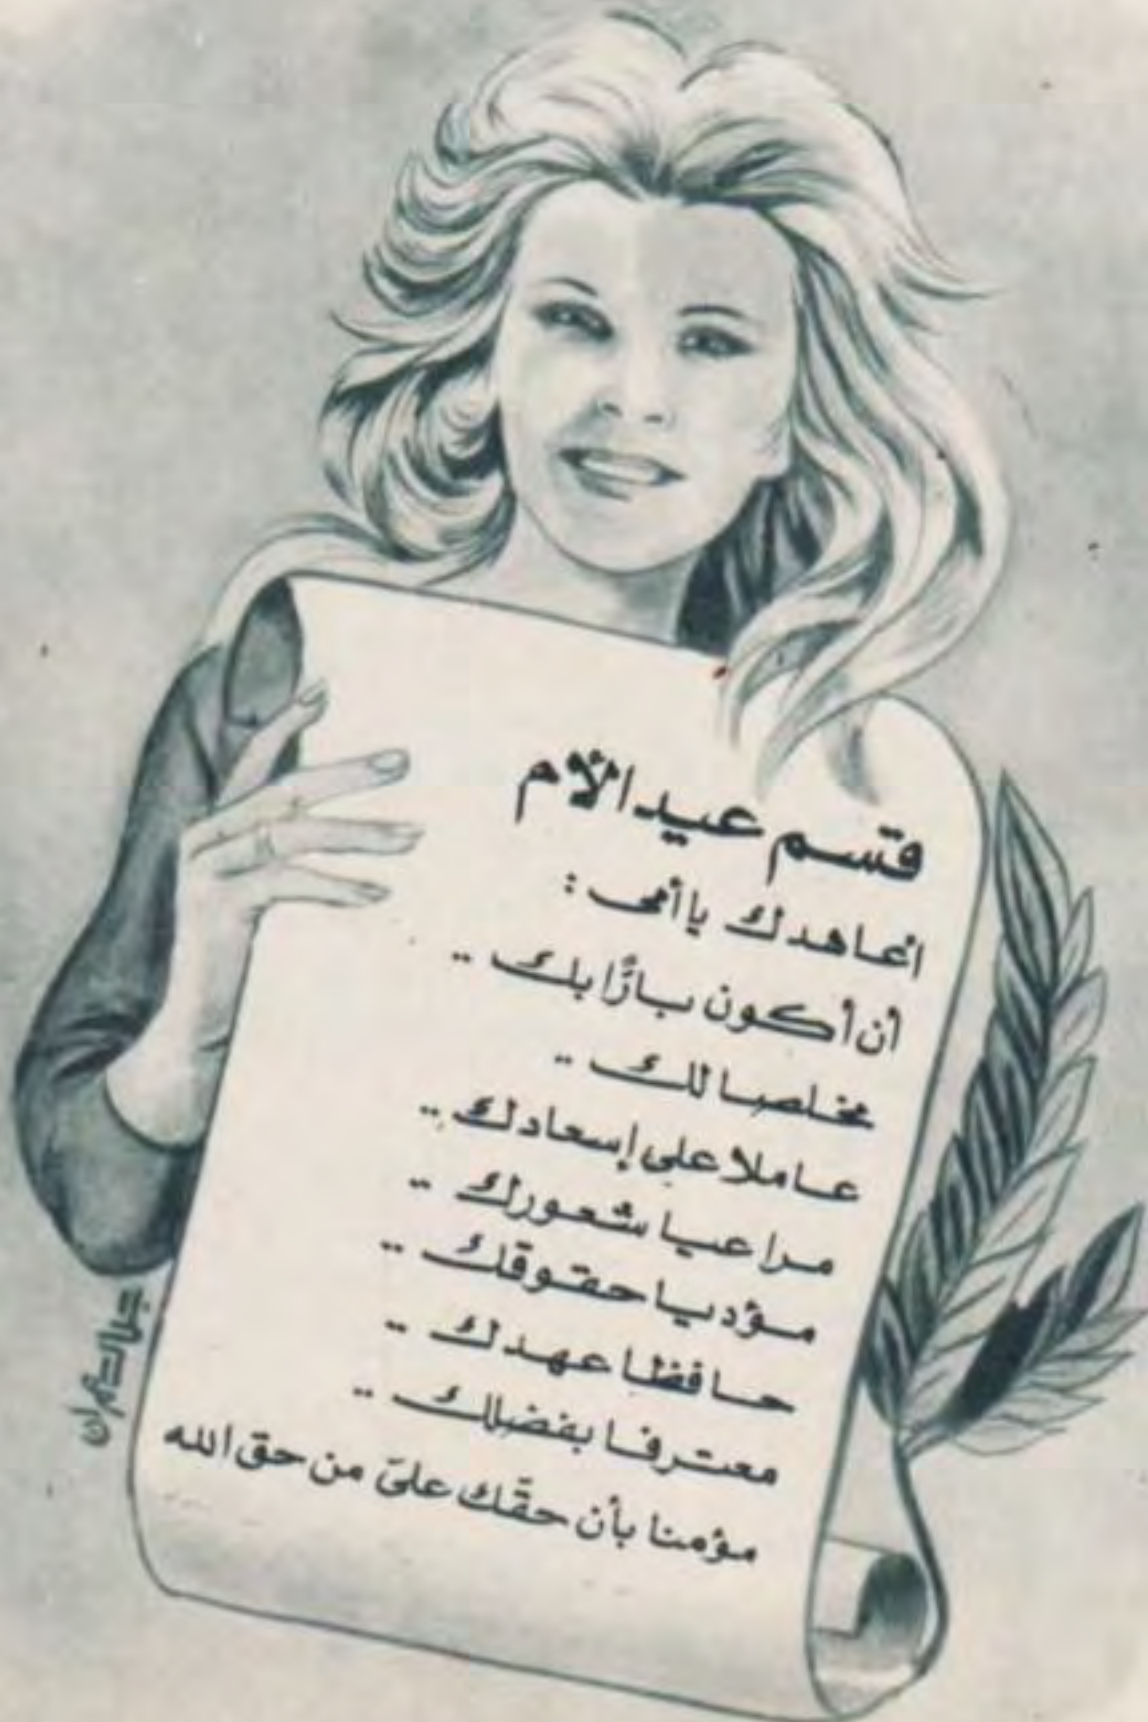 قسم عيد الأم
أعاهدك يا أمى :
أن أكون بارًّا بك ..
مخلصا لك ..
عاملا على إسعادك ..
مراعيا شعورك ..
مؤديا حقوقك ..
حافظا عهدك ..
معترفا بفضلك ..
مؤمنا بأن حقّك علىّ من حق الله